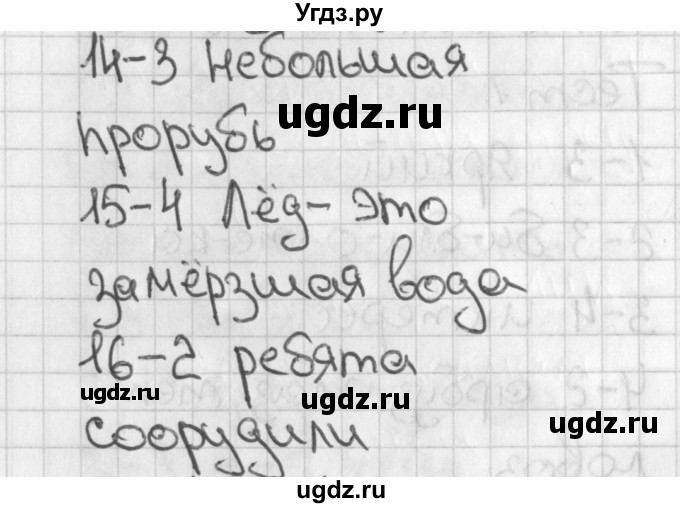 Угдз.ру
14-3 небольшая
ugdz.ru
прорубь
15-4 Лёд- это
замёрзшая вода
16-2 ребята
ugdz.ru
ugdz.ru
ugdz.ru
соорудили
ugdz.ru